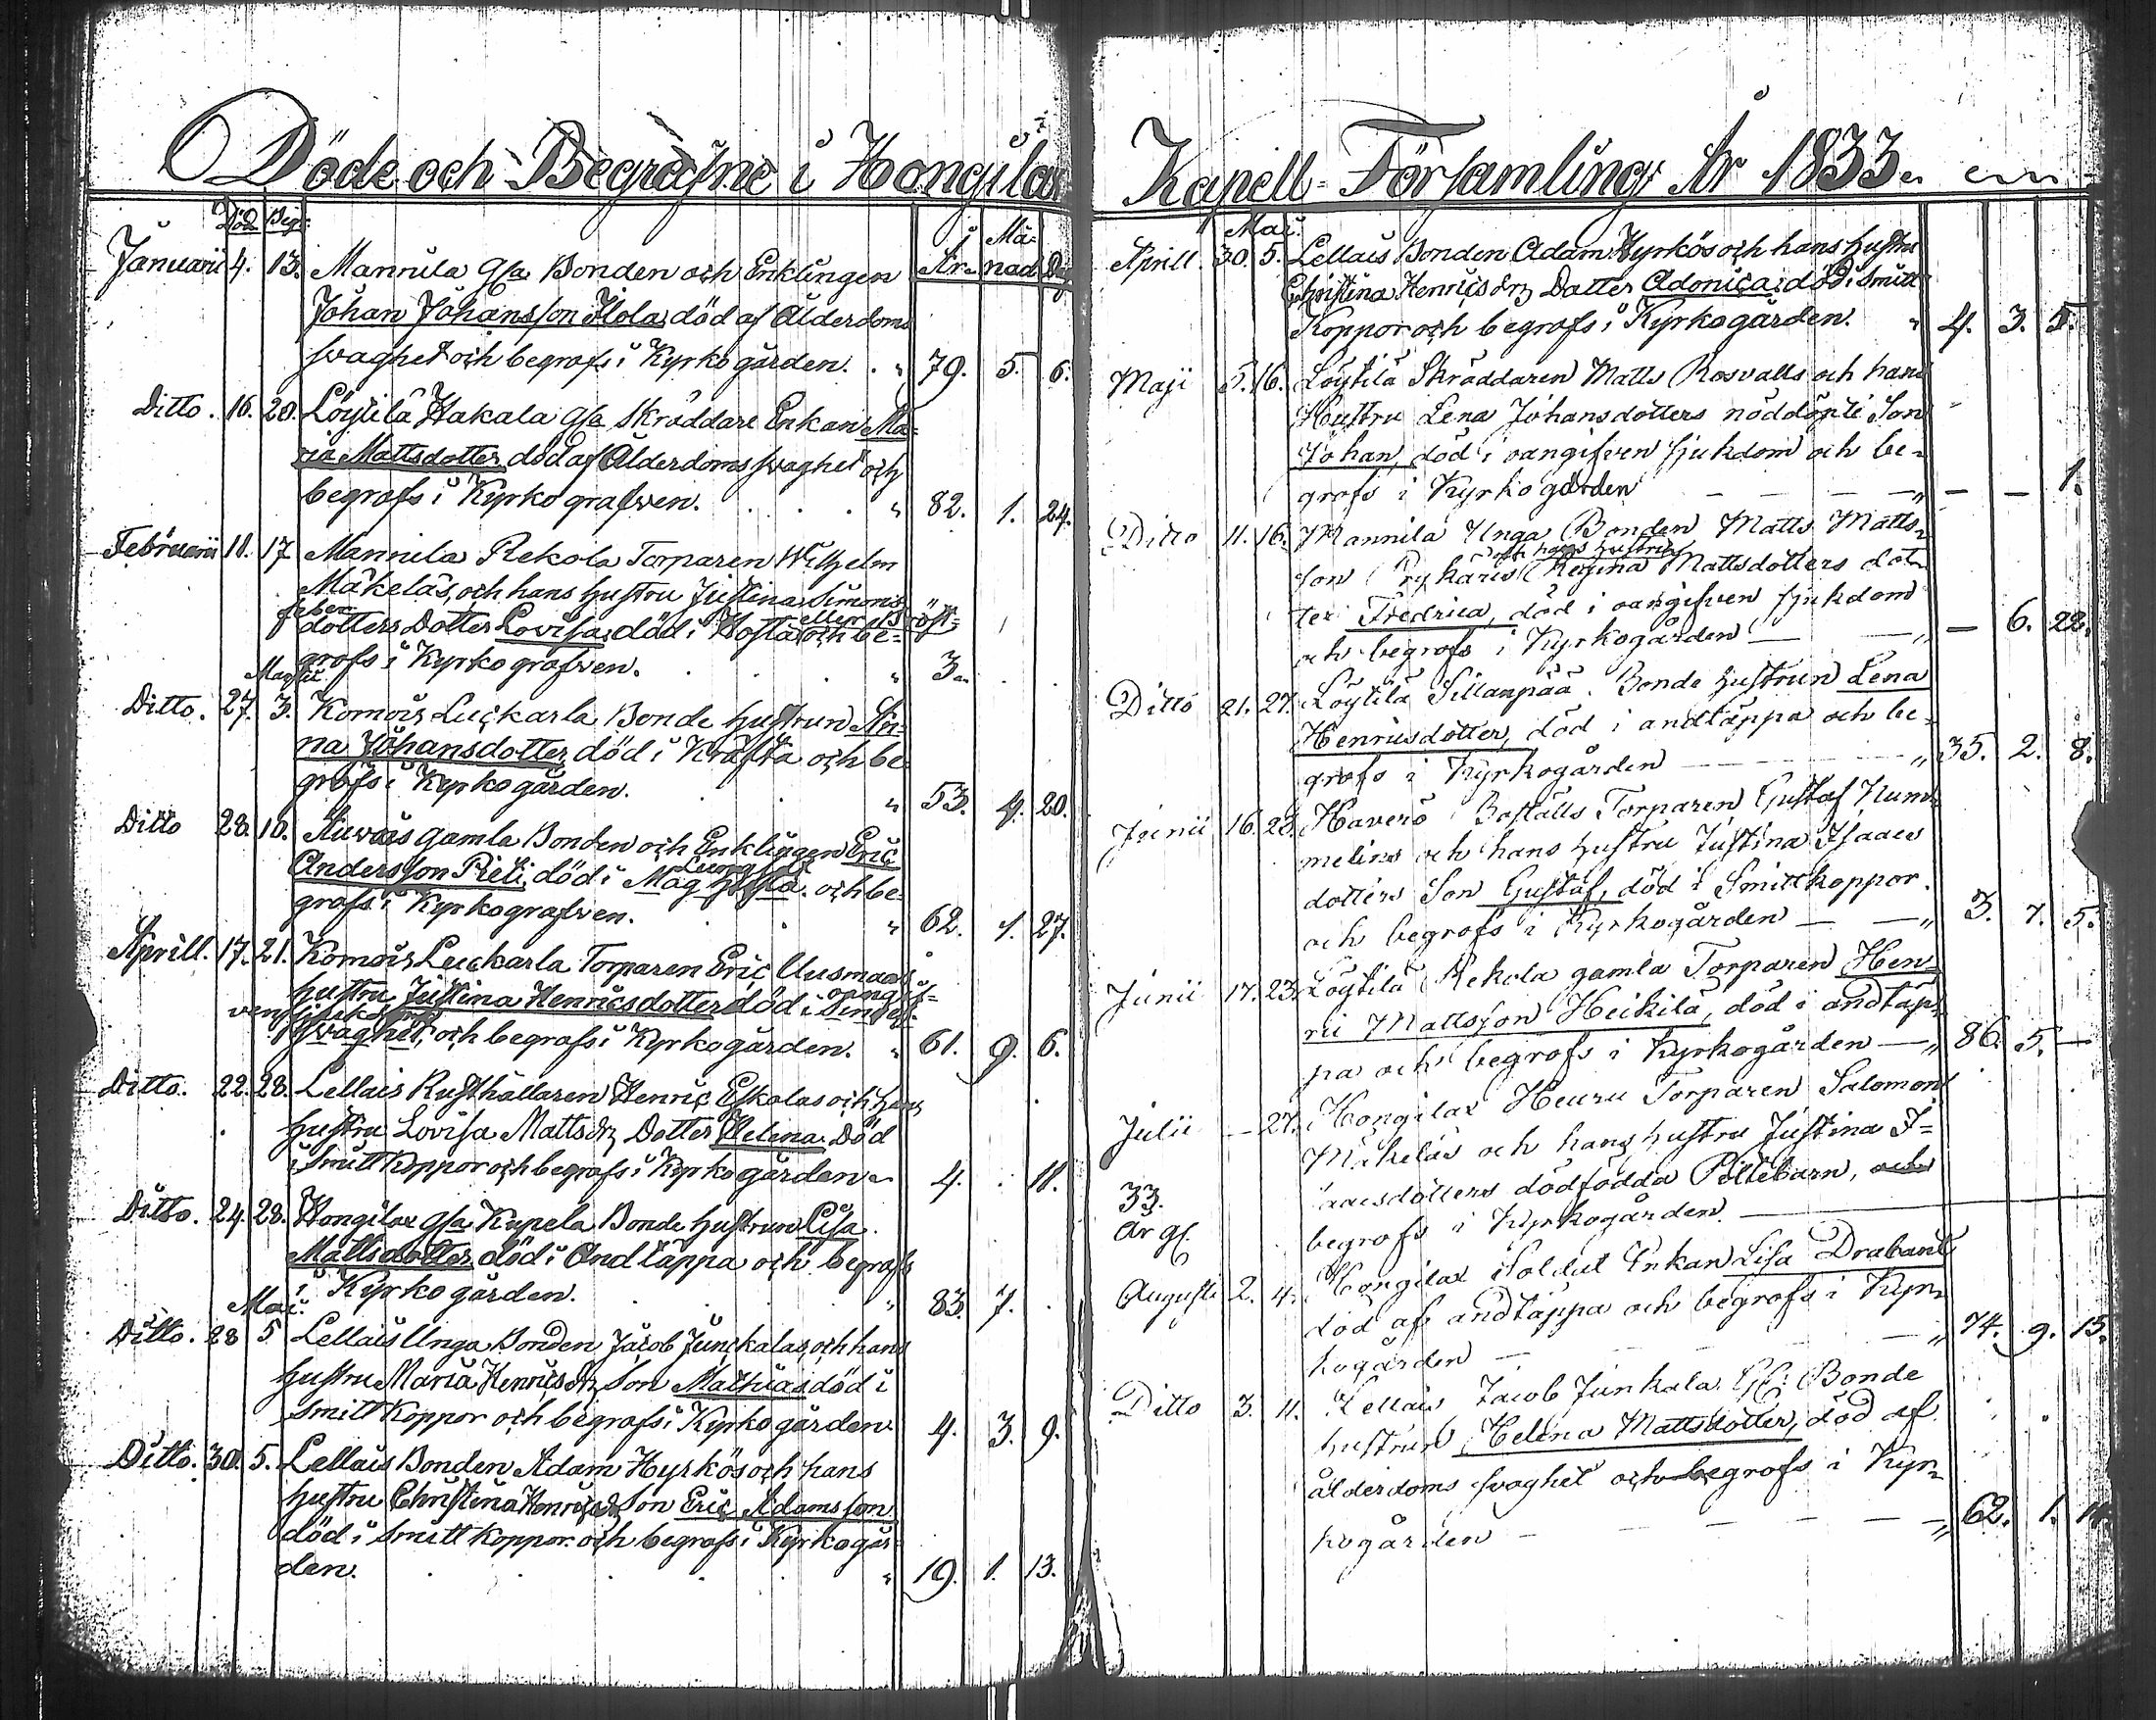 Döde och Begrafne i Hongilax
Död Begr:
År Månad Dag
Januarii 4. 13. Mannila Gla Bonden och Enklingen
Johan Johansson Ilola, död af Ålderdoms
svaghet och begrofs i Kyrkogården. 79. 5. 6.
Ditto. 16. 20. Löytilä Hakala Gla Skräddare Enkan Ma=
ria Mattsdotter död af Ålderdoms svaghet och
begrofs i Kyrko grafven. 82. 1. 24.
Februarii 11. 17 Mannila Rekola Torparen Wilhelm
Mäkeläs, och hans hustru Justina Simons
feber eller Bröst=
dotters Dotter Lovisa, död i Hosta och be=
grofs i Kyrko grafven. 3.
Martii
Ditto. 27. 3. Komois Luckarla Bonde hustrun An=
na Johansdotter, död i Kräfta och be
grofs i Kyrko gården. 53. 4. 20.
Ditto 28. 10. Auvais gamla Bonden och Enklingen Eric
Andersson Rieti, död i och be
grofs i Kyrkografven. 62. 1. 27.
Aprill. 17. 21. Komois Luckarla Torparen Eric Uusmaas
oangif=
hustru Justina Henricsdotter död i
ven sjukdom
svaghet, och begrofs i Kyrkogården. 61. 9. 6.
Ditto. 22. 28. Lellais Rusthållaren Henric Eskolas och hans
hustru Lovisa Mattsdr Dotter Helena. Död
i Smittkoppor och begrofs i Kyrko gården 4. . 11.
Ditto. 24. 28. Hongilax Gla Kupela Bonde hustrun Lisa
Mattsdotter död i Andtäppa och begrofs
i Kyrko gården. 83. 7.
Mai.
Ditto. 28 5 Lellais Unga Bonden Jacob Junckalas, och hans
hustru Maria Henricsdr Son Mathias död i
Smitt Koppor och begrofs i Kyrko gården. 4. 3. 9.
Ditto. 30. 5. Lellais Bonden Adam Hyrkös och hans
hustru Christina Henricsdr Son Eric Adamsson
död i Smitt koppor och begrofs i Kyrkogår
den. 19. 1. 13.
Kapell=Församling År 1833.
Mai.
Aprill. 30. 5. Lellais Bonden Adam Hyrkös och hans hustru
Christina Henricsdrs Dotter Adonica, död i Smitt
Koppor och begrofs i Kyrkogården. 4. 3. 5.
Maji 5. 16. Löytilä Skräddaren Matts Rosvalls och hans
Hustru Lena Johansdotters nöddöpte Son
Johan, död i oangifven sjukdom och be=
grofs i Kyrkogården — — — — 1.
Ditto 11. 16. Mannila Unga Bonden Matts Matts=
och hans hustru
son Regina Mattsdotters dot=
ter Fredrica, död i oangifven sjukdom
och begrofs i Kyrkogården — — 6. 22.
Ditto 21. 27. Löytilä Sillanpää Bonde hustrun Lena
Henricsdotter, död i andtäppa och be=
grofs i Kyrkogården — 35. 2. 8.
Junii 16. 23. Haverö Boställs Torparen Gustaf Num=
melins och hans hustru Justina Isaacs
dotters Son Gustaf, död i Smittkoppor.
och begrofs i Kyrkogården — — 3. 7. 5.
Junii 17. 23. Löytilä Rekola gamla Torparen Hen=
ric Mattsson Heikilä, död i andtäp=
pa och begrofs i Kyrkogården — 86. 5. —
Julii — 27. Hongilax Heuru Torparen Salomon
Mäkeläs och hans hustru Justina I=
saacsdotters dödfödda Piltebarn, och
33.
begrofs i Kyrkogården. —
år gl.
Augusti 2. 4. Hongilax Soldat Enkan Lisa Drabant
död af andtäppa och begrofs i Kyr=
kogården — — 74. 9. 15.
Ditto 3. 11. Lellais Jacob Junkala Gl: Bonde
hustrun Helena Mattsdotter, död af
ålderdoms svaghet och begrofs i Kyr=
kogården — — — — — 62. 1. 11.